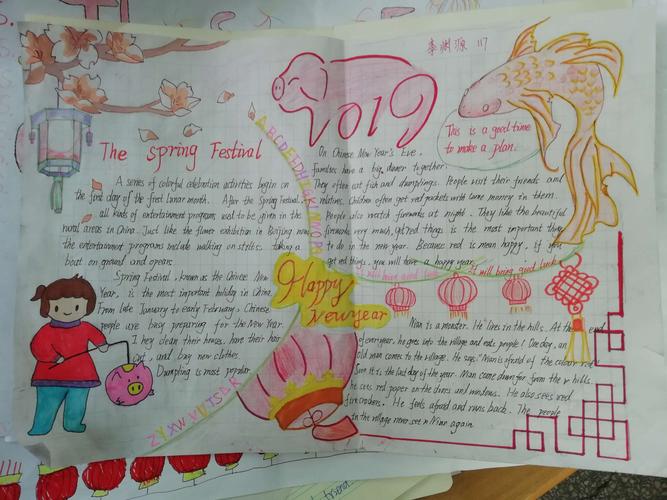 李渊源 117
2019
The Spring Festival
A series of colorful celebration activities begin on
the first day of the first lunar month. After the Spring Festival,
all kinds of entertainment programs used to be given in the
rural areas in China. Just like the flower exhibition in Beijing now,
the entertainment programs include walking on stilts, taking a
boat on ground and opera.
Spring Festival, known as the Chinese New
Year, is the most important holiday in China.
From late January to early February, Chinese
people are busy preparing for the New Year.
They clean their houses, have their hair
cut, and buy new clothes.
Dumpling is most popular
ABCDEFGHIJKLMNOPQ
ZYXWVUTSR
On Chinese New Year's Eve,
families have a big dinner together.
They often eat fish and dumplings. People visit their friends and
relatives. Children often get red pockets with some money in them.
People also watch fireworks at night. They like the beautiful
fireworks very much. get red things is the most important thing
to do in the new year. Because red is mean happy, if you
get red things, you will have a happy year.
It will bring good luck.
This is a good time
to make a plan.
Happy
New year
Nian is a monster. He lives in the hills. At the end
of every year, he goes into the village and eats people! One day, an
old man comes to the village. He says "Nian is afraid of the colour red
Soon it is the last day of the year. Nian comes down from the hills.
he sees red paper on the doors and windows. He also sees red
fire crackers. He feels afraid and runs back. The people
in the village never see Nian again.